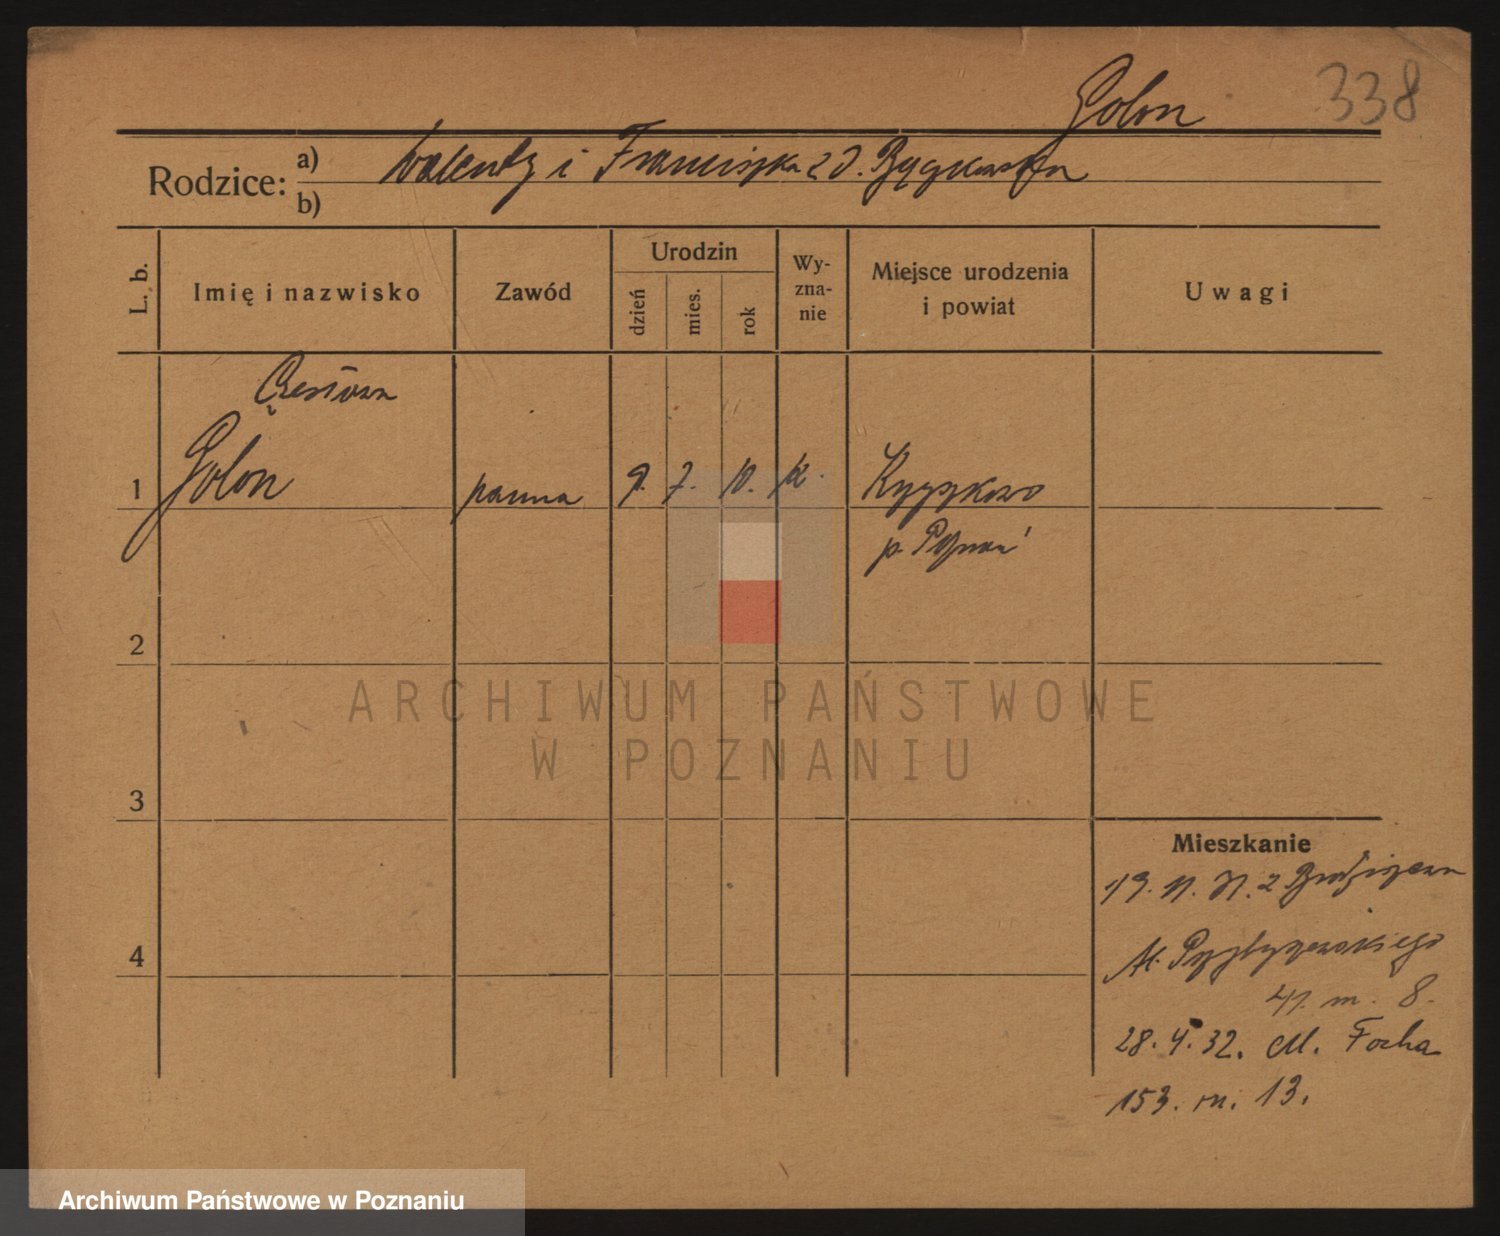 338
Golon
Rodzice: a) Walenty i Franciszka z d.
b)
L. b.
Imię i nazwisko
Zawód
Urodzin
dzień
mies.
rok
Wy-
zna-
nie
Miejsce urodzenia
i powiat
Uwagi
Czesława
1 Golon panna 9. 7. 10. k. Krzyżkowo
p. Poznań
2
ARCHIWUM PAŃSTWOWE
W POZNANIU
3
Mieszkanie
19. 11. 31. z
4
Al. Przybyszewskiego
41. m. 8.
28. 4. 32. M. Focha
153. m. 13.
Archiwum Państwowe w Poznaniu